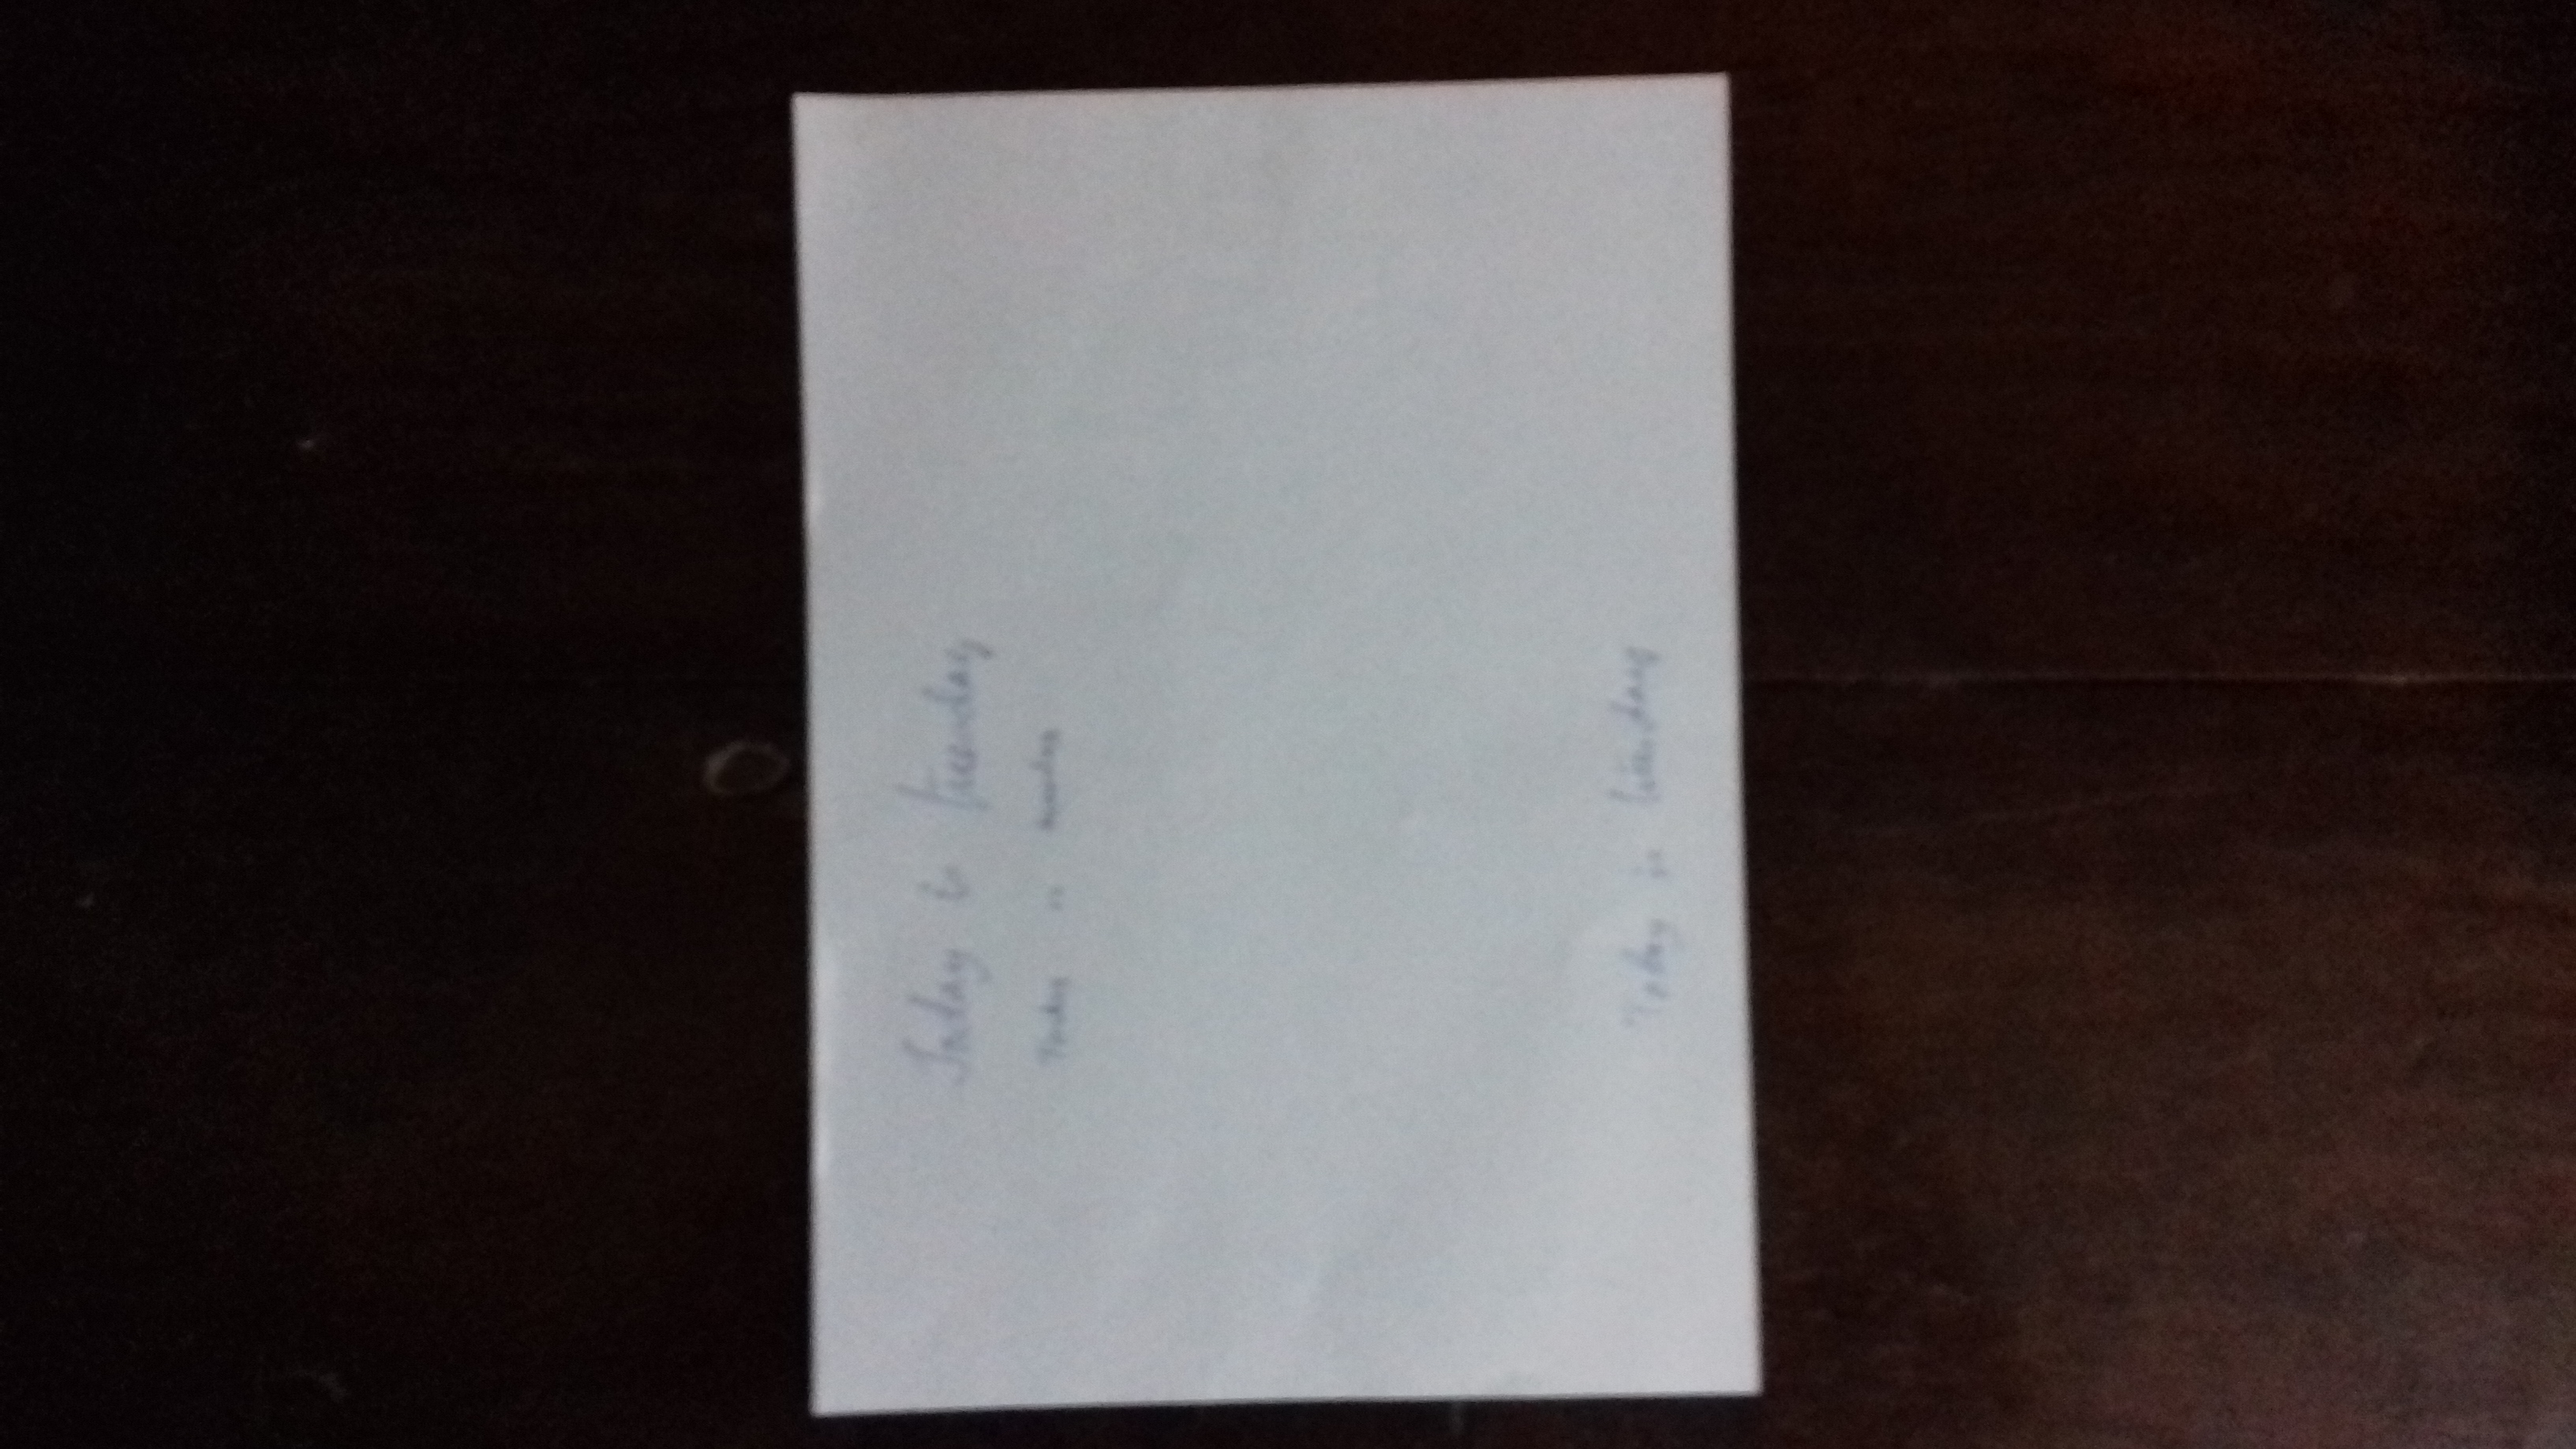 Today is tuesday
Today is tuesday
Today is tuesday